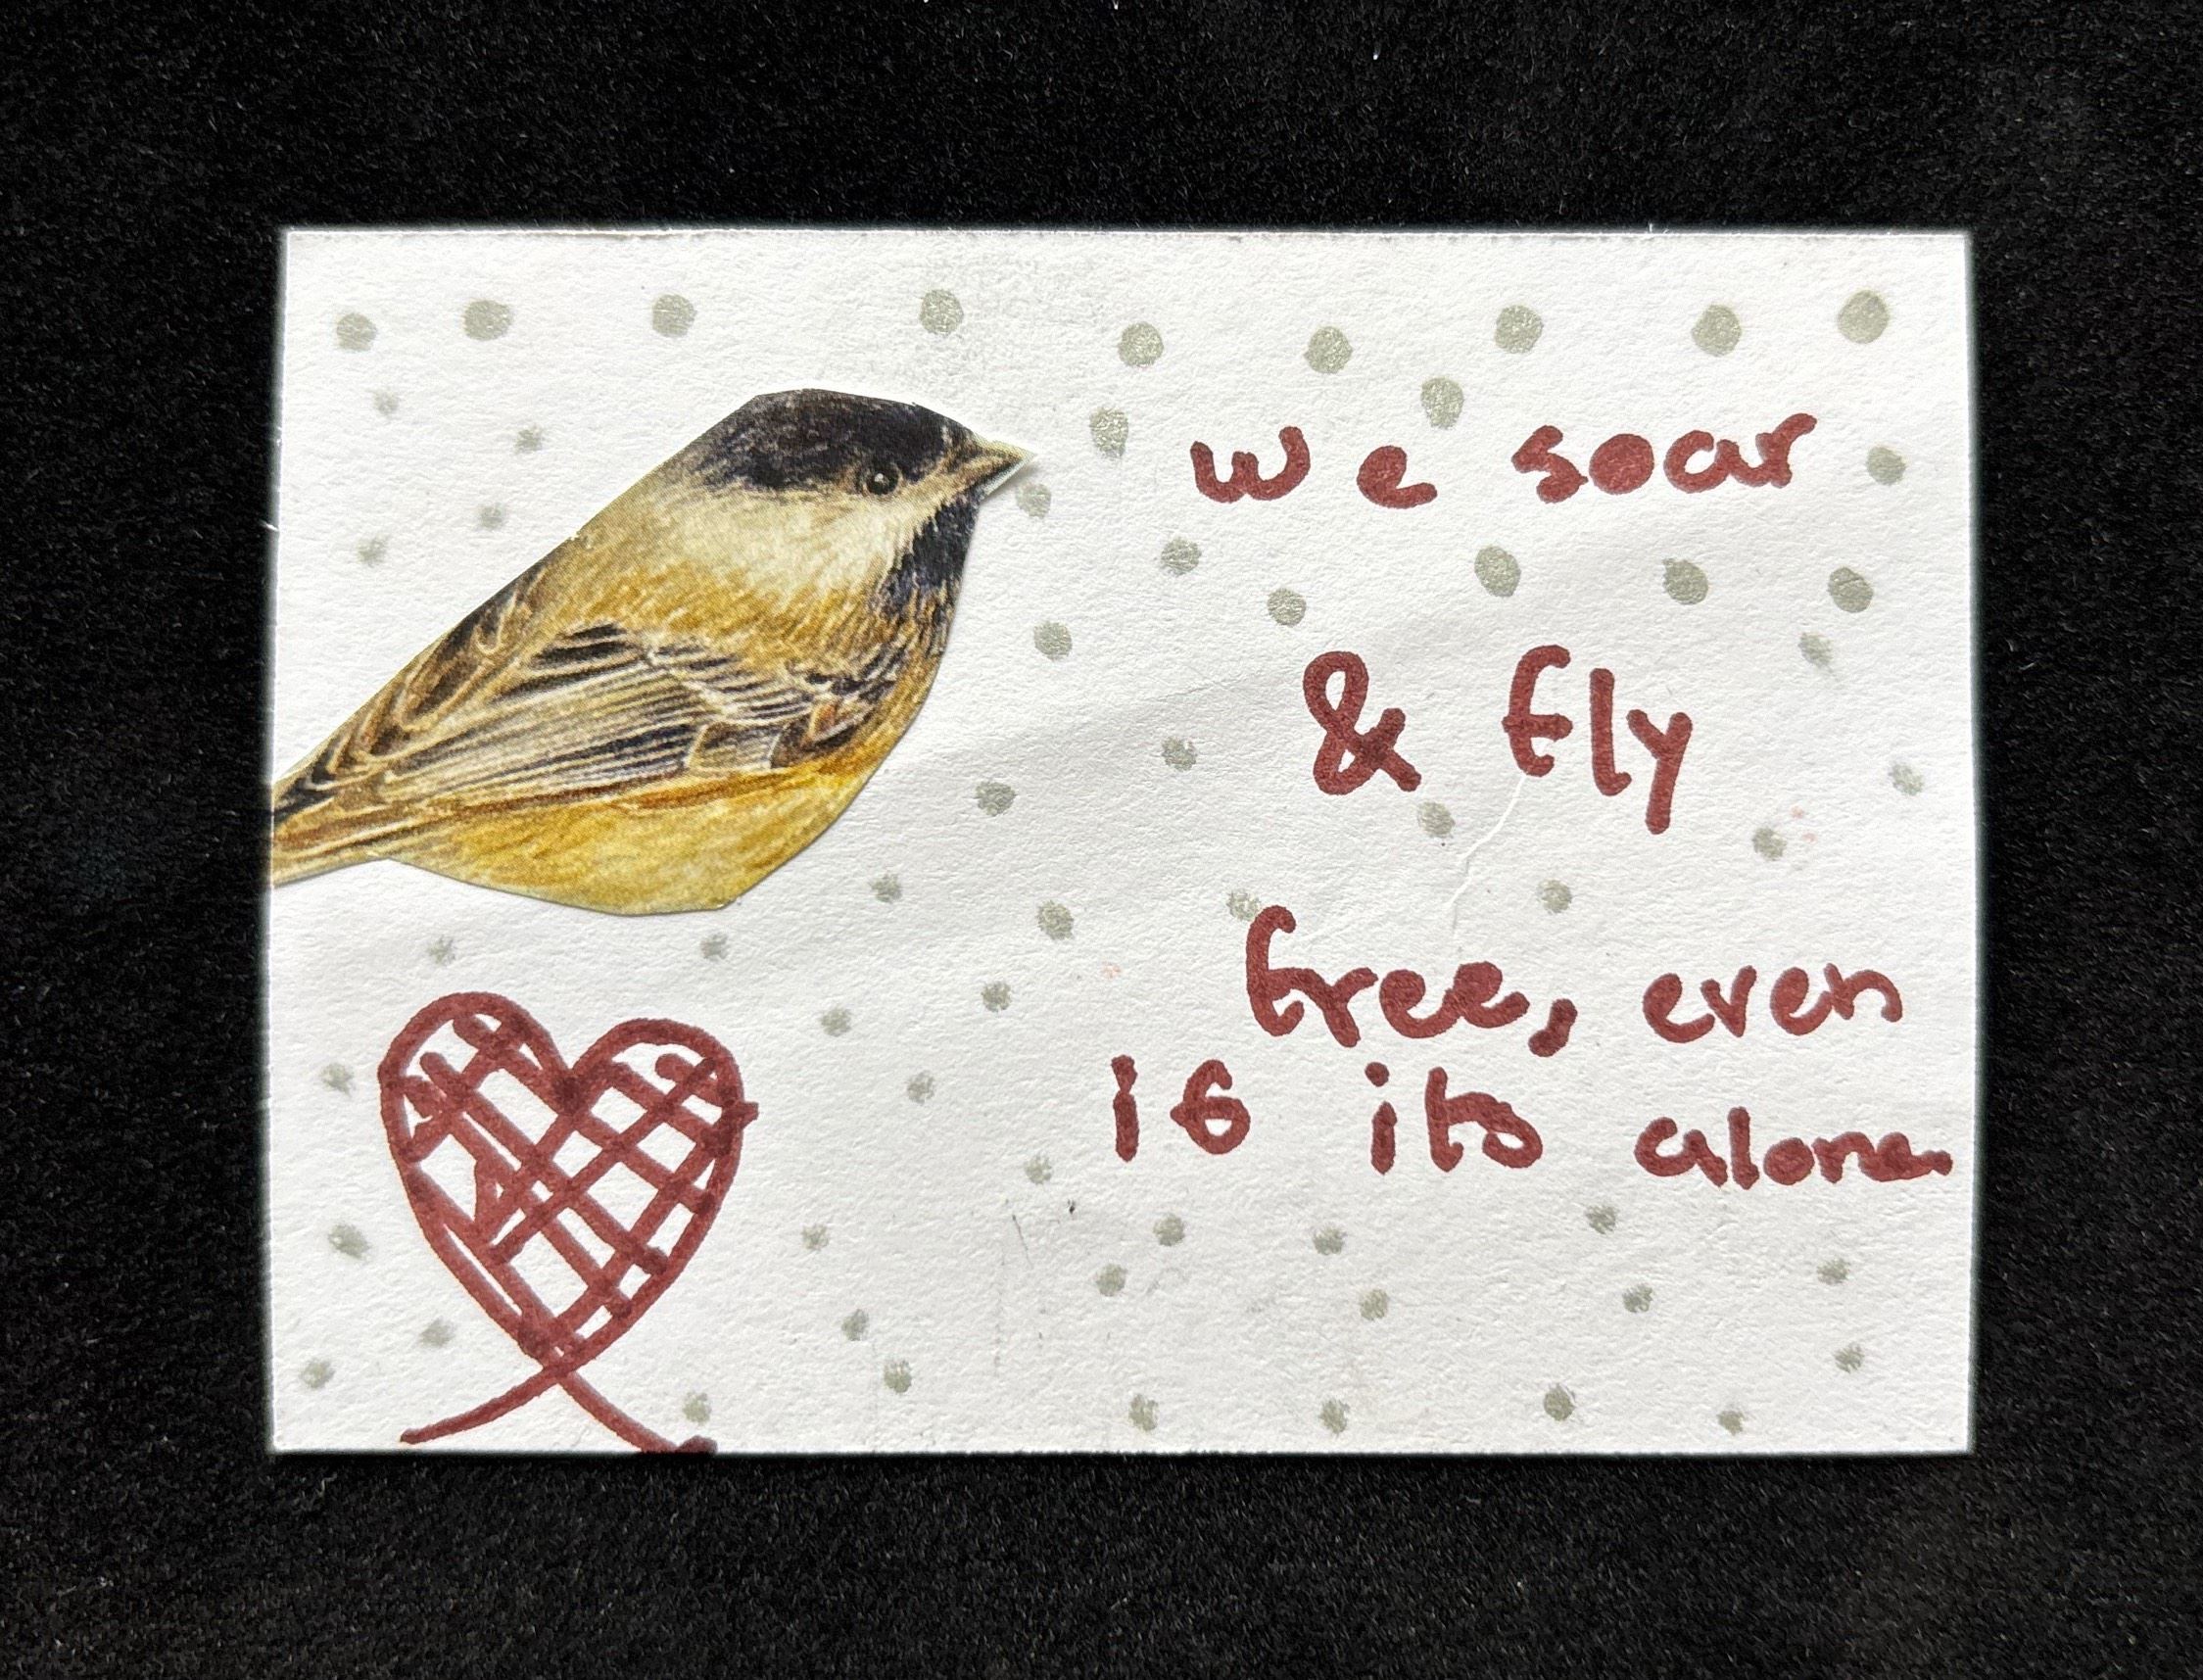 we soar
& fly
free, even
if its alone.